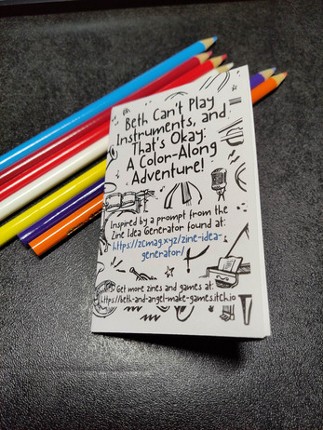 Beth Can't Play
Instruments, and
That's Okay:
A Color-Along
Adventure!
Inspired by a prompt from the
Zine Idea Generator found at:
https://zcmag.xyz/zine-idea-
generator/
Get more zines and games at:
https://beth-and-angel-make-games.itch.io